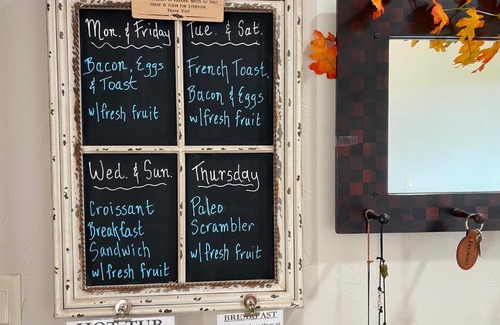 THERE IS ROOM FOR EVERYONE
Thank You!
Mon. & Friday
Bacon, Eggs
& Toast
w/fresh fruit
Tue. & Sat.
French Toast,
Bacon & Eggs
w/fresh fruit
Wed. & Sun.
Croissant
Breakfast
Sandwich
w/fresh fruit
Thursday
Paleo
Scrambler
w/fresh fruit
HOT TUB
BREAKFAST